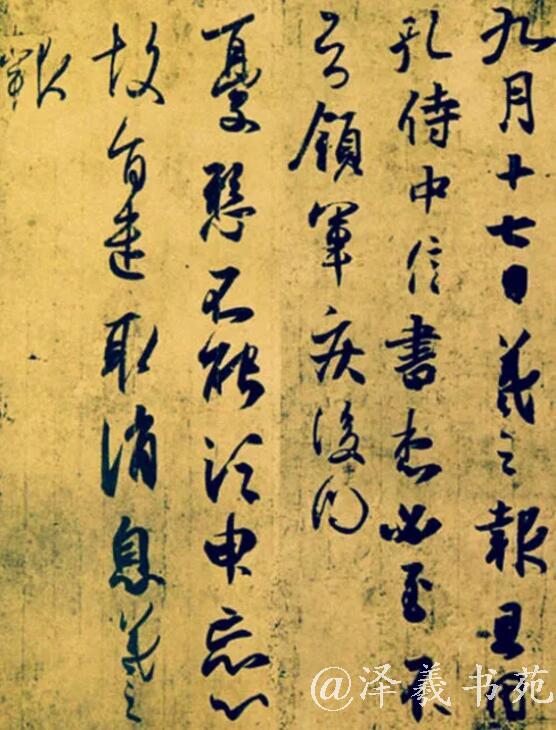 九月十七日羲之報且因
孔侍中信書想必至不
知領軍疾後問
憂懸不能須臾忘心
故旨遣取消息羲之
報
@泽羲书苑